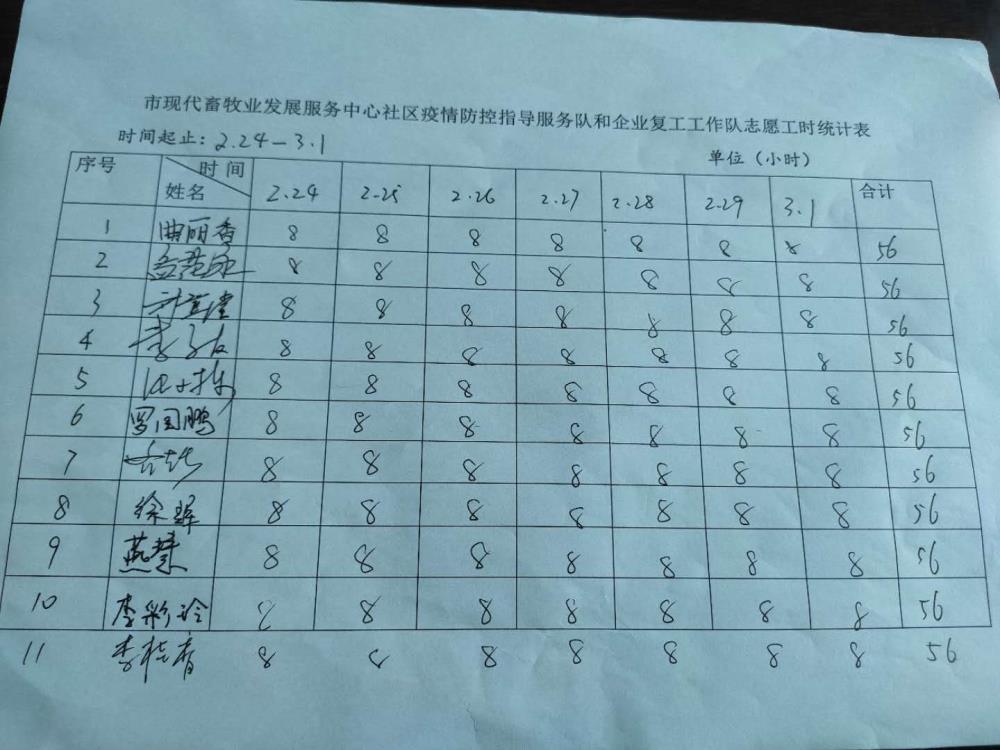 市现代畜牧业发展服务中心社区疫情防控指导服务队和企业复工工作队志愿工时统计表
时间起止：2.24—3.1
单位（小时）
序号 时间 姓名 2.24 2.25 2.26 2.27 2.28 2.29 3.1 合计
1 曲丽香 8 8 8 8 8 8 8 56
2 8 8 8 8 8 8 8 56
3 8 8 8 8 8 8 8 56
4 8 8 8 8 8 8 8 56
5 8 8 8 8 8 8 8 56
6 罗国鹏 8 8 8 8 8 8 8 56
7 8 8 8 8 8 8 8 56
8 徐辉 8 8 8 8 8 8 8 56
9 燕慧 8 8 8 8 8 8 8 56
10 李彩玲 8 8 8 8 8 8 8 56
11 李桂香 8 8 8 8 8 8 8 56